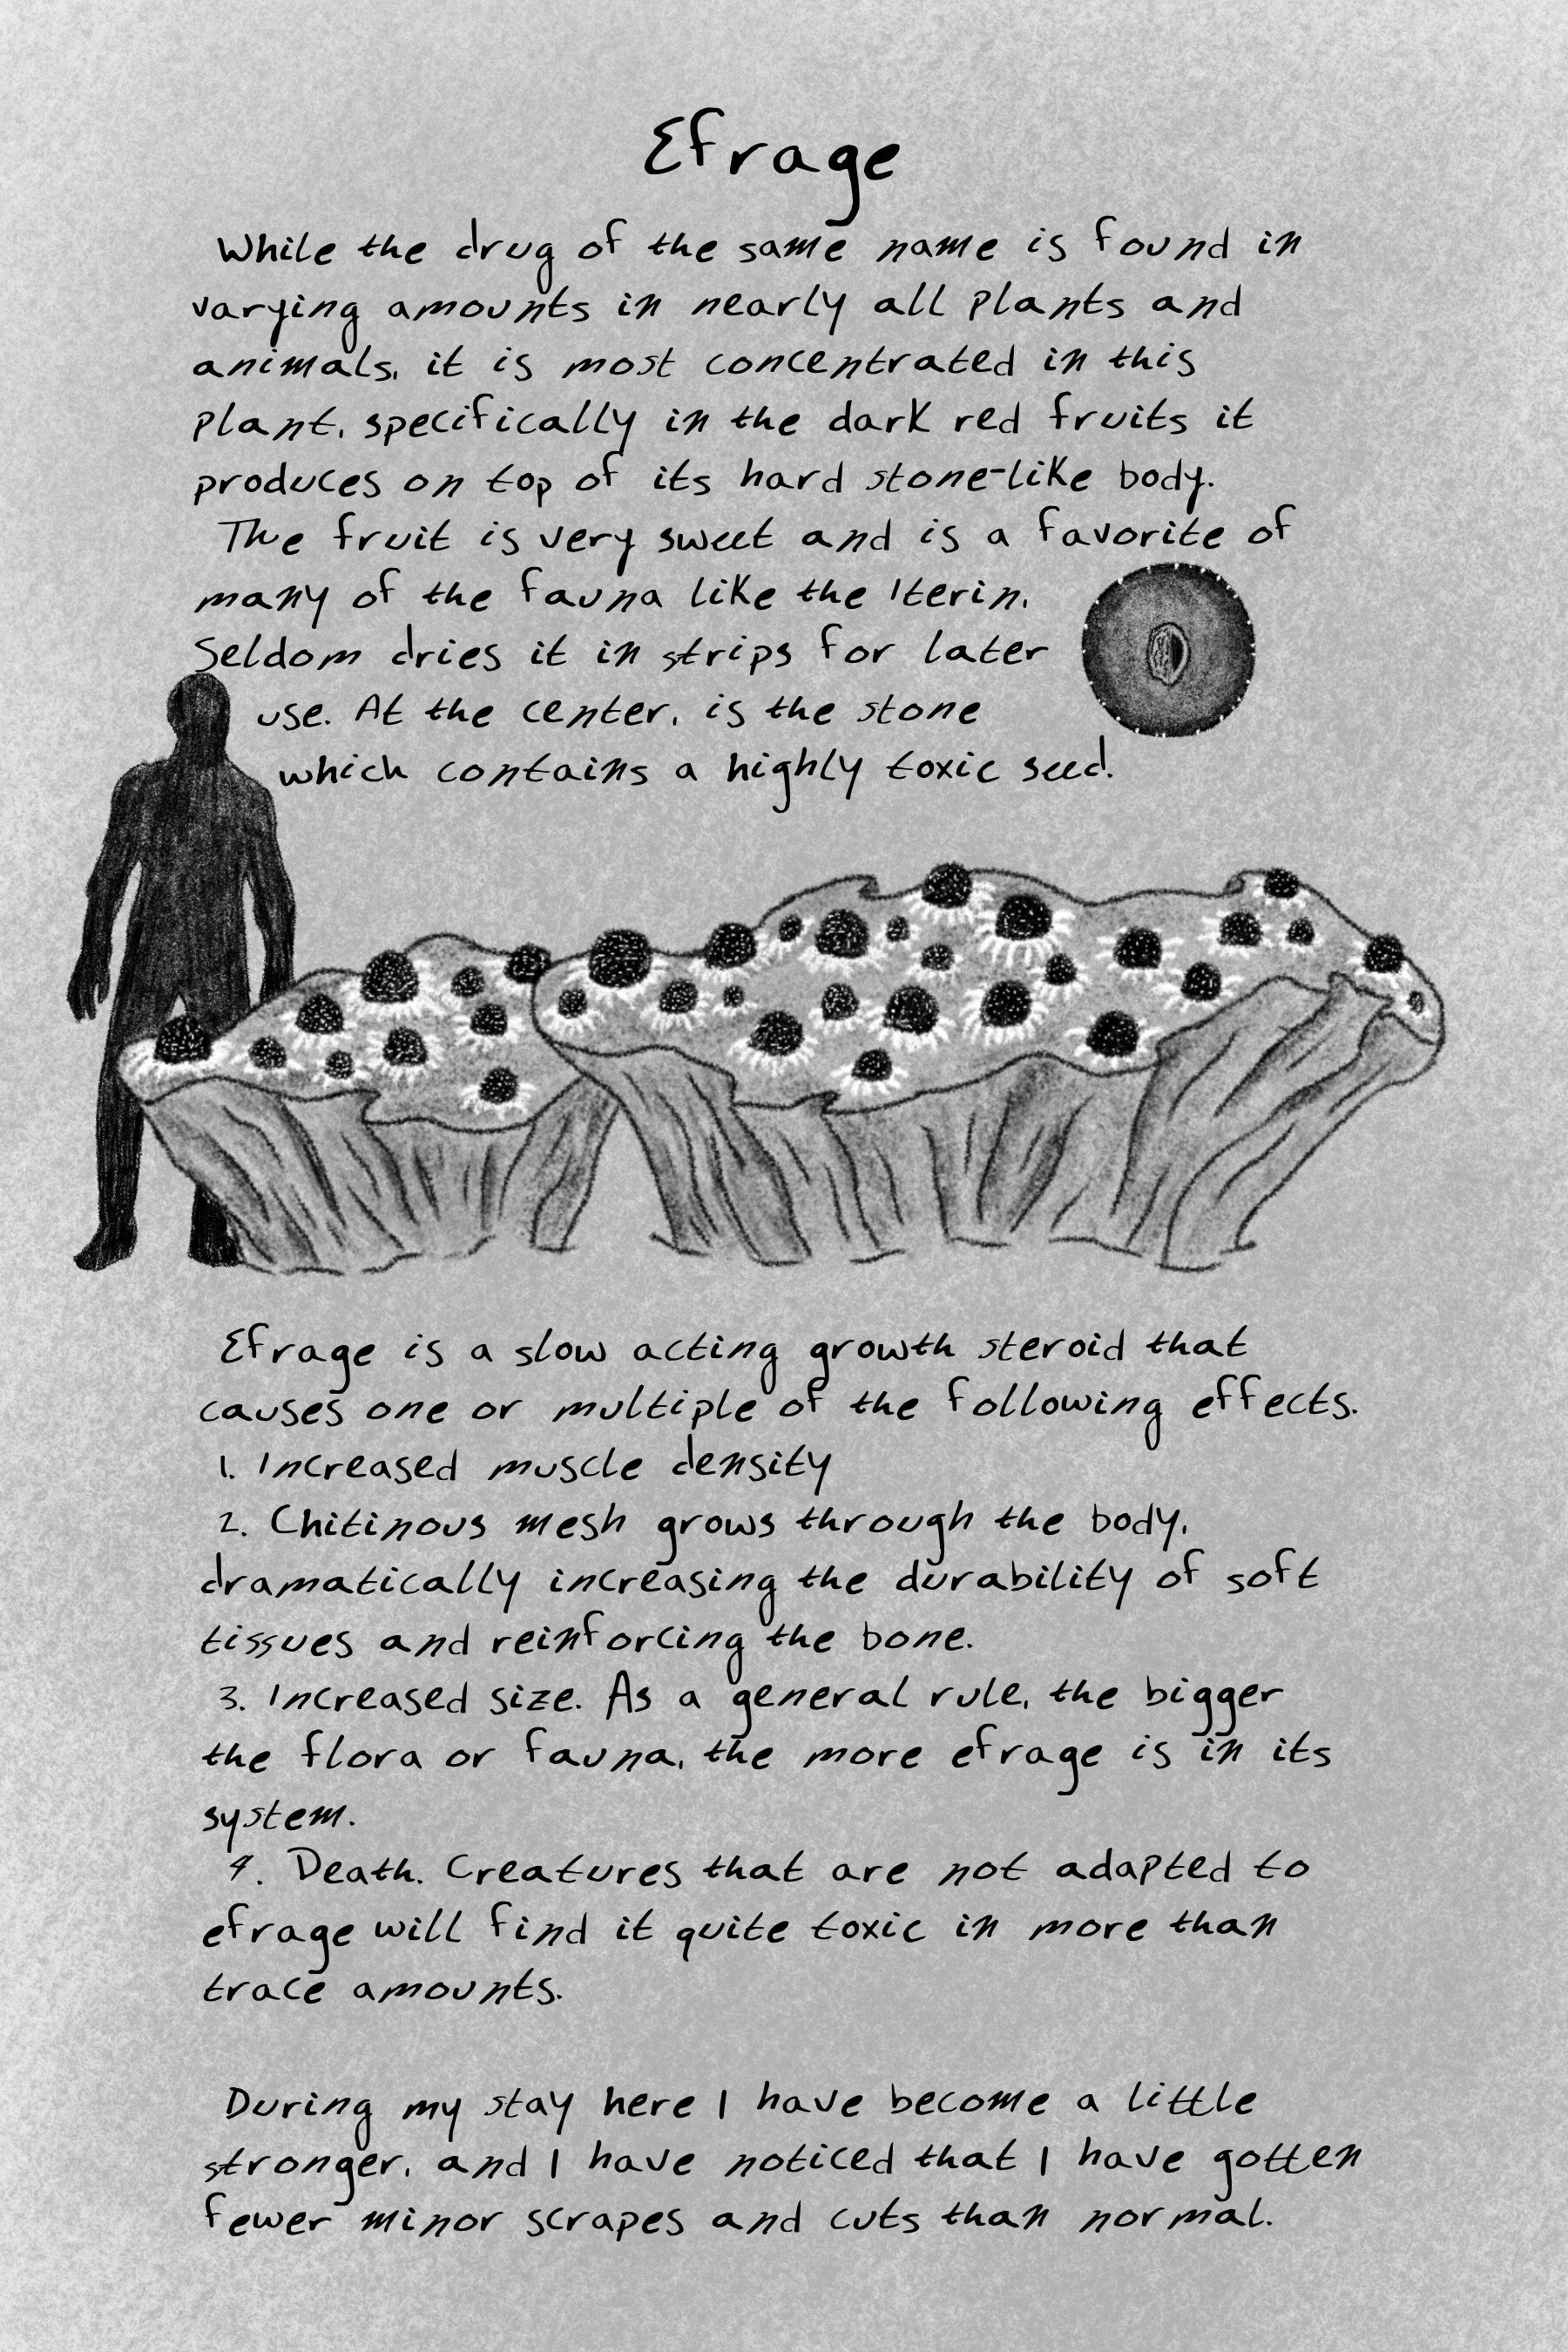 Efrage
While the drug of the same name is found in
varying amounts in nearly all plants and
animals, it is most concentrated in this
plant, specifically in the dark red fruits it
produces on top of its hard stone-like body.
The fruit is very sweet and is a favorite of
many of the fauna like the Iterin.
Seldom dries it in strips for later
use. At the center, is the stone
which contains a highly toxic seed.
Efrage is a slow acting growth steroid that
causes one or multiple of the following effects.
1. Increased muscle density
2. Chitinous mesh grows through the body,
dramatically increasing the durability of soft
tissues and reinforcing the bone.
3. Increased size. As a general rule, the bigger
the flora or fauna, the more efrage is in its
system.
4. Death. Creatures that are not adapted to
efrage will find it quite toxic in more than
trace amounts.
During my stay here I have become a little
stronger, and I have noticed that I have gotten
fewer minor scrapes and cuts than normal.